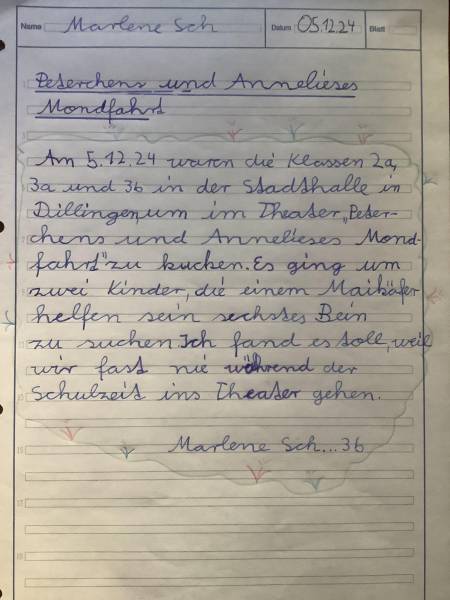 Name Marlene Sch Datum 05.12.24 Blatt
Peterchens und Annelieses
Mondfahrt
Am 5.12.24 waren die Klassen 2a,
3a und 3b in der Stadthalle in
Dillingen, um im Theater „Peter-
chens und Annelieses Mond-
fahrt" zu kucken. Es ging um
zwei Kinder, die einem Maikäfer
helfen sein sechstes Bein
zu suchen. Ich fand es toll, weil
wir fast nie während der
Schulzeit ins Theater gehen.
Marlene Sch... 3b